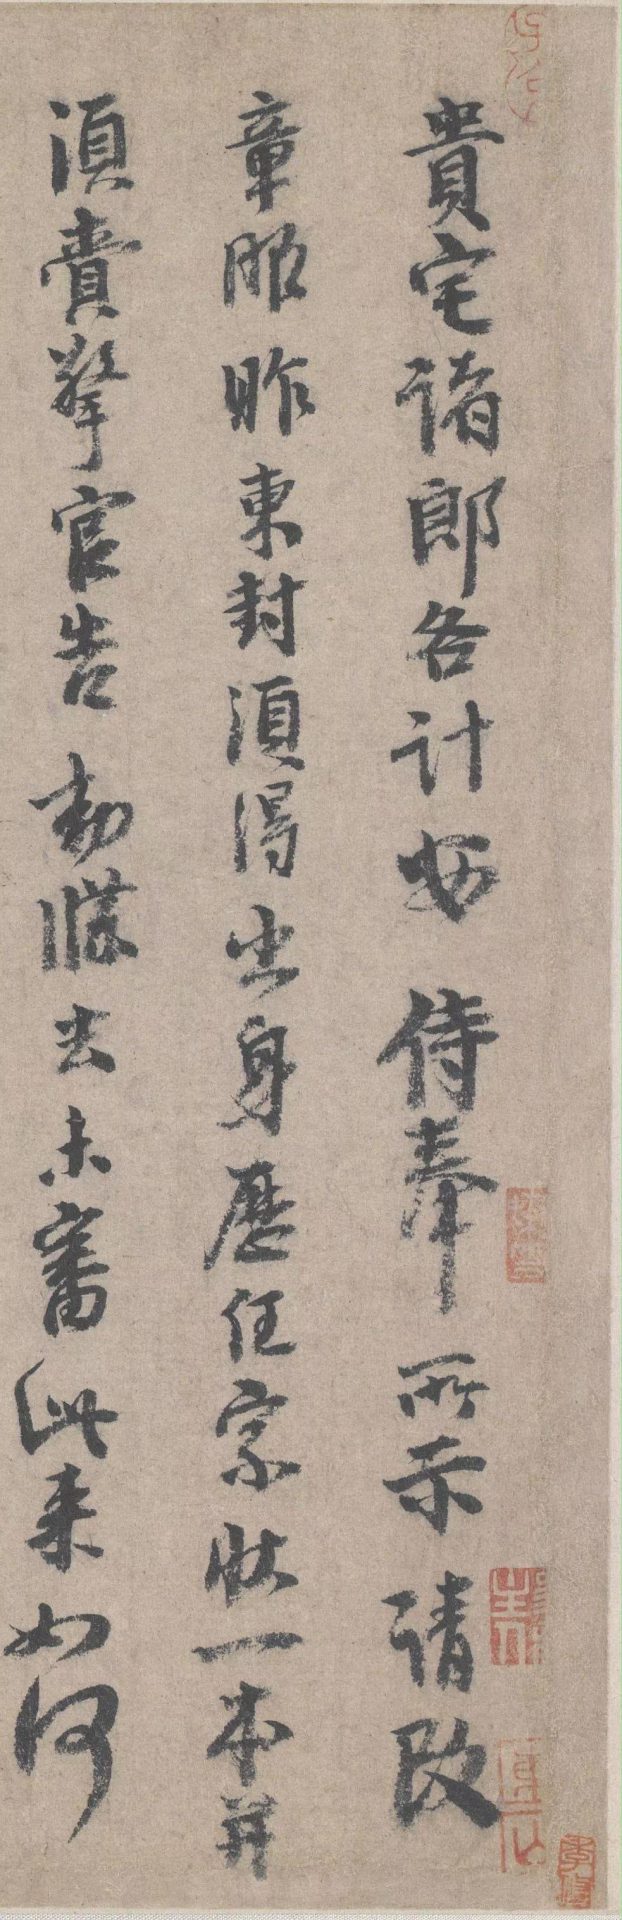 貴宅諸郎各計安侍奉所示請改
章服昨東封須得出身歷任家狀一本并
須賫擎官告勅牒去未審此来如何